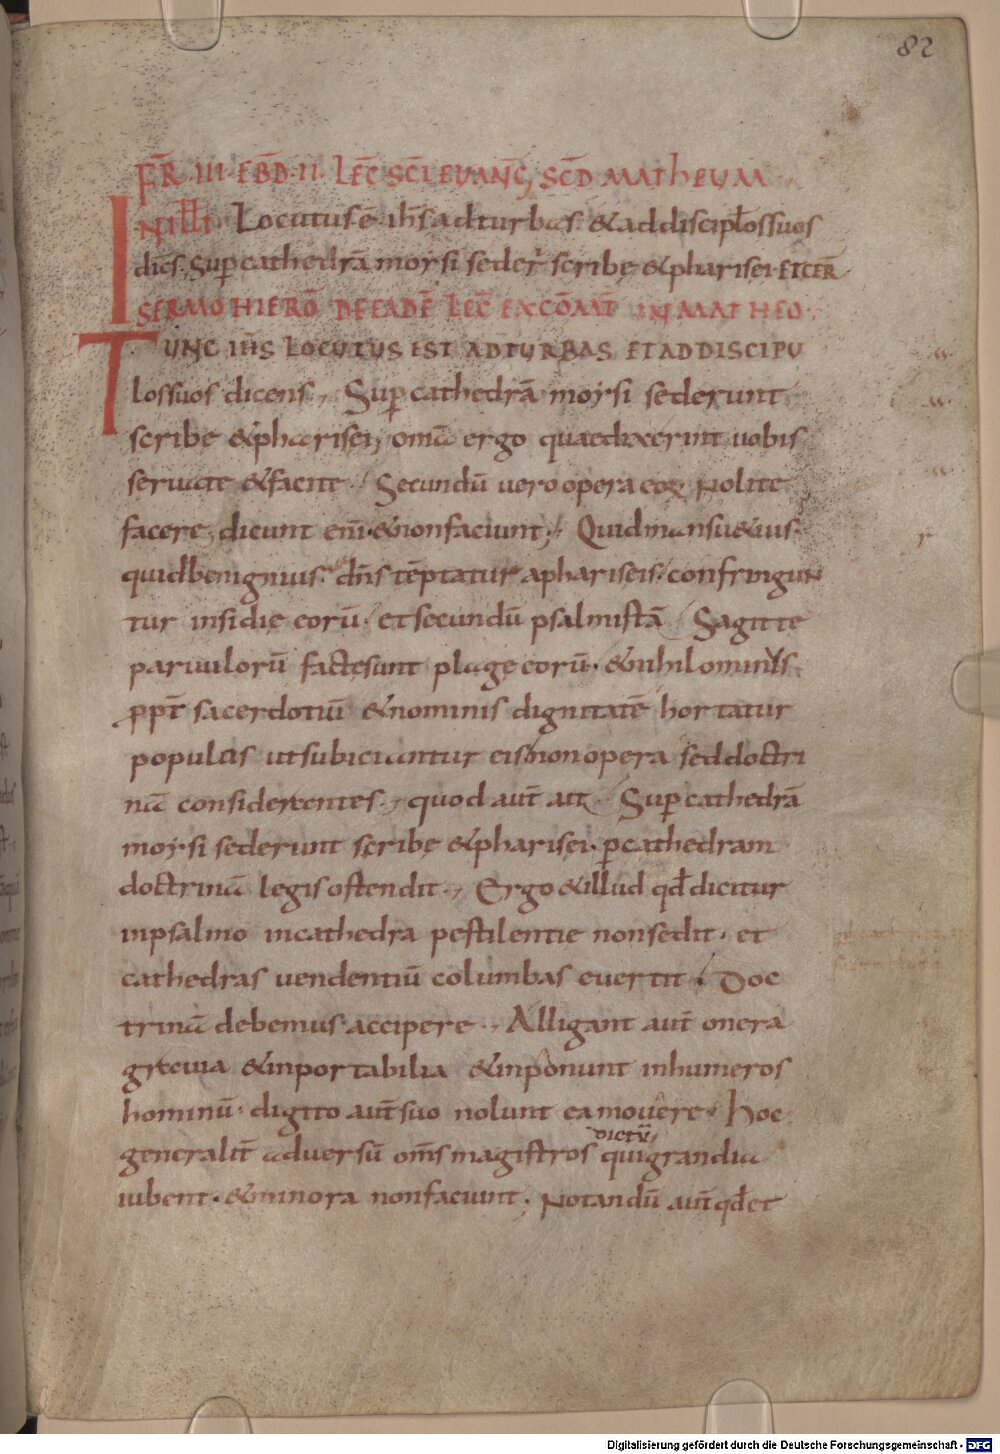 82
FR̄ · III · EB̄D · II · LEC̄ SC̄I EVANḠ, SC̄D MATHEUM
IN ILL̄ · Locutus ē ih̄s ad turbas & ad discipl̄os suos
dic̄s, Sup cathedrā moysi seder̄ scribę & pharisei · ET CET̄R
SERMO HIERŌ DE EADĒ LEC̄ EX COM̄T̄ IN MATHEO ·
TUNC IH̄S LOCUTUS EST AD TURBAS ET AD DISCIPU
los suos dicens, Sup cathedrā moysi sederunt
scribę & pharisei, om̄a ergo quaecūxerint uobis
seruate & facite. Secundū uero opera eoꝝ nolite
facere, dicunt eni̅ · & non faciunt; Quid mansu&ius ·
quid benignius · dn̄s tēptatur a phariseis · confringun
tur insidię eorū · et secundū psalmistā Sagitte
paruulorū factę sunt plagę eorū · & nihilominus
ꝓpt̄ sacerdotiū & nominis dignitatē hortatur
populus ut subiciantur eis non opera sed doctri
nā considerentes, quod aut̄ ait. Sup cathedrā
moysi sederunt scribę & pharisei · p cathedram
doctrinā legis ostendit, Ergo & illud qd̄ dicitur
in psalmo in cathedra pestilentie non sedit · et
cathedras uendentiū columbas euertit · Doc
trinā debemus accipere, Alligant aut̄ onera
grauia & inportabilia & inponunt in humeros
hominū · digito aut̄ suo nolunt ea mouere · Hoc
dictū
generalit̄ aduersū om̄s magistros qui grandia
iubent · & minora non faciunt. Notandū aut̄ qd̄ et
Digitalisierung gefördert durch die Deutsche Forschungsgemeinschaft - DFG